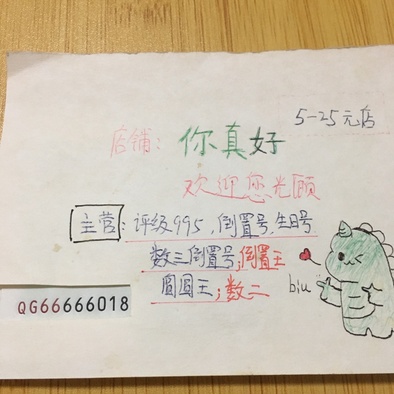 5-25元店
店铺: 你真好
欢迎您光顾
主营:评级995,倒置号,生日号
数三倒置号;倒置王
biu
QG66666018
圆圆王;数二